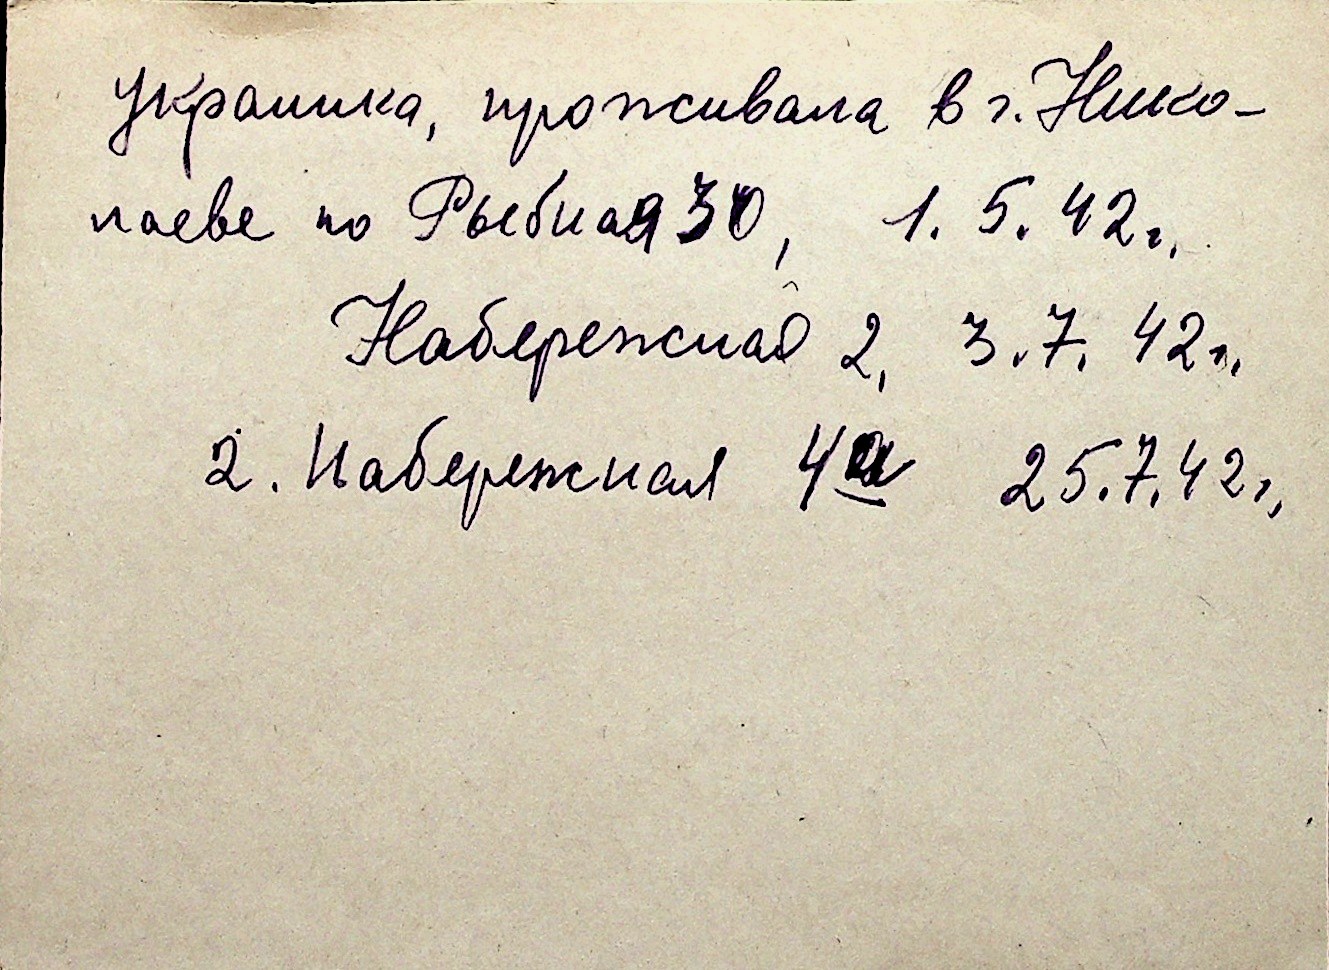 Украинка, проживала в г. Нико-
лаеве по Рыбная 30, 1. 5. 42 г.,
Набережная 2, 3. 7. 42 г.,
2. Набережная 4а 25. 7. 42 г.,